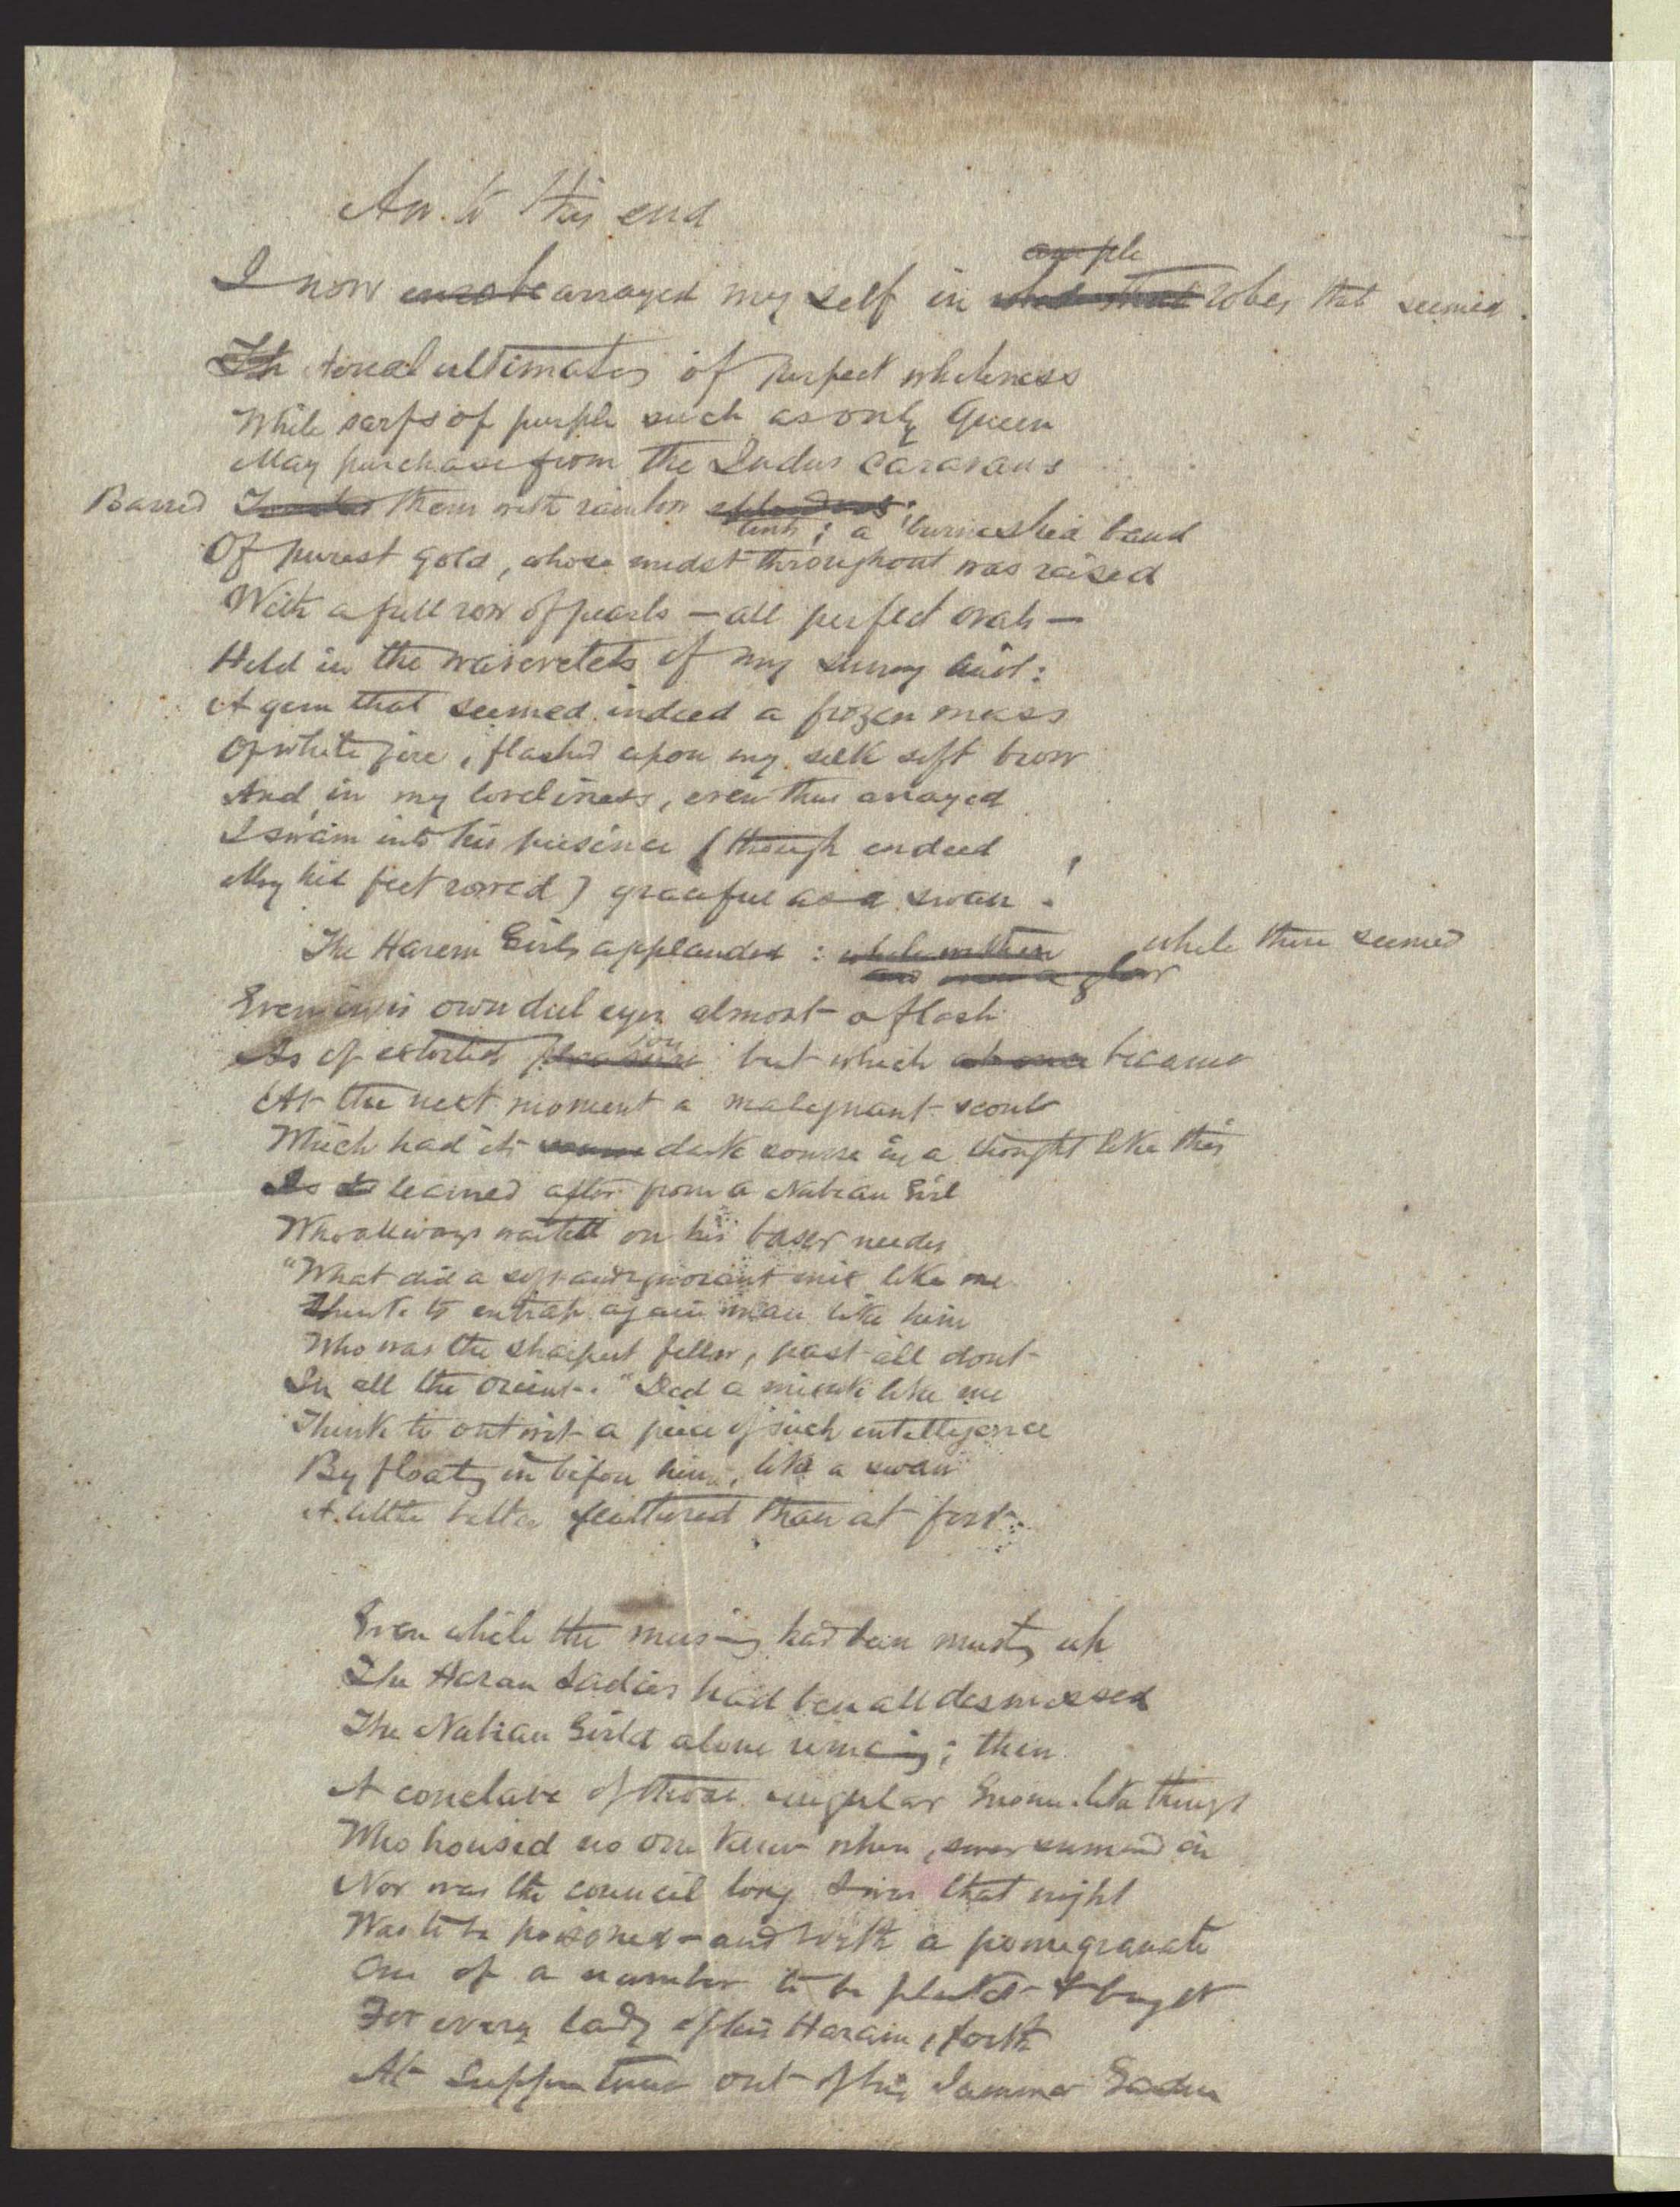 An. to this end
ample
I now enrobe arrayed my self in robes that seemed
The tonal ultimates of perfect whiteness
While sarfs of purple such as only Queen
May purchase from the Indus caravans
Barred them with rainbow splendours;
tints; a burnished band
Of purest gold, whose midst throughout was raised
With a full row of pearls — all perfect ovals —
Held in the wavevelets of my sunny hair:
A gem that seemed indeed a frozen mass
Of white fire, flashed upon my silk soft brow
And in my loveliness, even thus arrayed
I swam into his presence (though indeed
My hid feet rowed) graceful as a swan!
The Harem Girls applauded: while within while there seemed
and a glow
Even in his own dul eyes almost a flash
joy
As of extorted pleasure but which at once became
At the next moment a malignant scowl
Which had its dark sourse in a thought like this
As I learned after from a Nubian Girl
Who allways waited on his baser needs
"What did a soft and ignorant mix like me
Think to entrap again man like him
Who was the sharpest fellow, past all dout
In all the orient. "Did a like me
Think to outwit a piece of such intelligence
By floatg in before him, like a swan
A little better feathered than at first.
Even while the musing had been mustg up
The Haram Ladies had ben all desmissed
The Nubian Girld alone remaing; then
A conclave of those singular Gnome like things
Who housed no one knew where, summoned in
Nor was the council long I was that night
Was to be poisoned — and with a pomegranate
One of a number to be pluckd & bought
For every lady of his Haraim, forth
At Supper time out of his Summer Garden